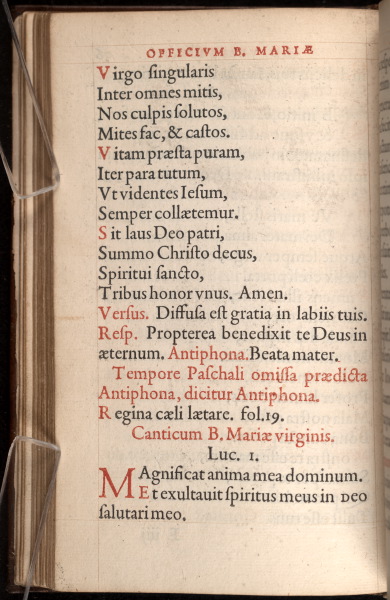 OFFICIVM B. MARIÆ
Virgo singularis
Inter omnes mitis,
Nos culpis solutos,
Mites fac, & castos.
Vitam præsta puram,
Iter para tutum,
Vt videntes Iesum,
Semper collætemur.
Sit laus Deo patri,
Summo Christo decus,
Spiritui sancto,
Tribus honor vnus. Amen.
Versus. Diffusa est gratia in labiis tuis.
Resp. Propterea benedixit te Deus in
æternum. Antiphona. Beata mater.
Tempore Paschali omissa prædicta
Antiphona, dicitur Antiphona.
Regina cæli lætare. fol.19.
Canticum B. Mariæ virginis.
Luc. 1.
MAgnificat anima mea dominum.
Et exultauit spiritus meus in DEO
salutari meo.